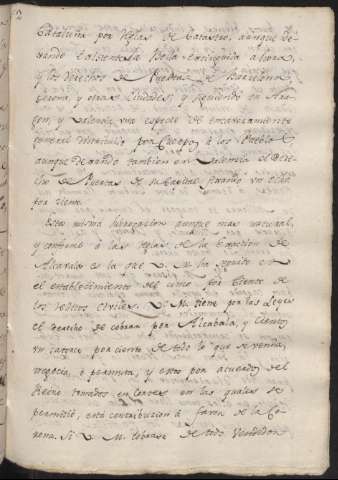 Cataluña por Reglas de Catastro, aunque de-
xando existente la Bolla extinguida ahora,
y los Derechos de Puertas de Barcelona
Gerona, y otras Ciudades; y siguiendo en Ara-
gon, y Valencia, una especie de Encavezamiento
general distribuido por Cuerpo, à los Pueblos
aunque dexando tambien en Valencia el Dere-
cho de Puertas de su Capital
por ciento.
Esta misma subrogacion aunque mas natural,
y conforme à las reglas de la Exaccion de
Alcavalas es la que V. M. ha
el establecimiento del cinco por ciento de
los reditos civiles. V. M. tiene por las Leyes
el derecho de cobrar por Alcabala, y Cientos
un catorce por ciento de todo lo que se venda,
negocia, ò permuta, y esto por acuerdos del
Reino tomados en Cortes en las quales se
permitiò, esta contribucion à favor de la Co-
rona. Si V. M. cobrase de todo Vendedor